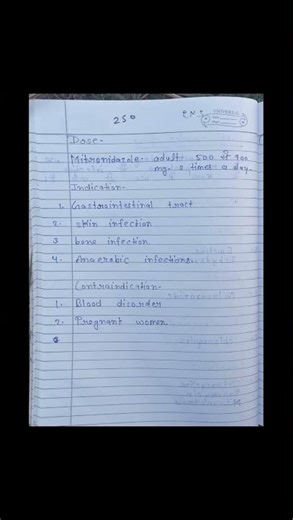 250
UNIVERSAL
Dose-
Mitronidazole- adult- 500 से 700
mg. 2 times a day.
Indication-
1. Gastrointestinal tract
2. skin infection
3 bone infection
4. Anaerobic infections.
Contraindication-
1. Blood disorder
2. Pregnant women